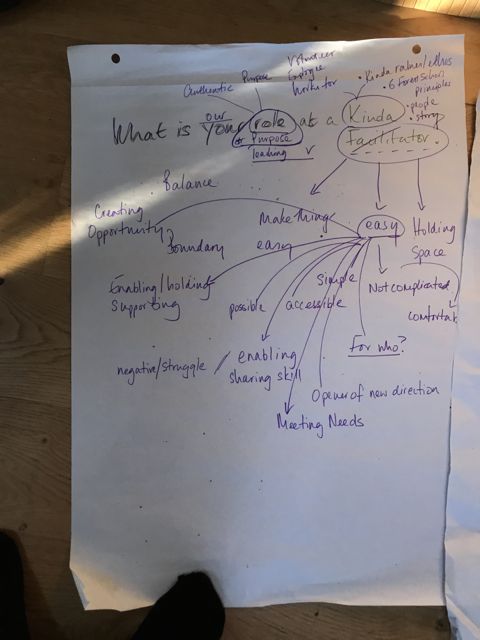 Volunteer
Employee
Work for
Purpose
Authentic
• Kinda values/ethos
• 6 Forest School
principles
• people
• story
our
What is your role as a Kinda
or Purpose
leading
Facilitator.
Balance
Creating
Opportunity
Boundary
Make things
easy
easy
Holding
Space
Enabling/holding
Supporting
possible
accessible
Simple
Not complicated
comfortab
negative/struggle / enabling
sharing skill
For who?
Opener of new direction
Meeting Needs